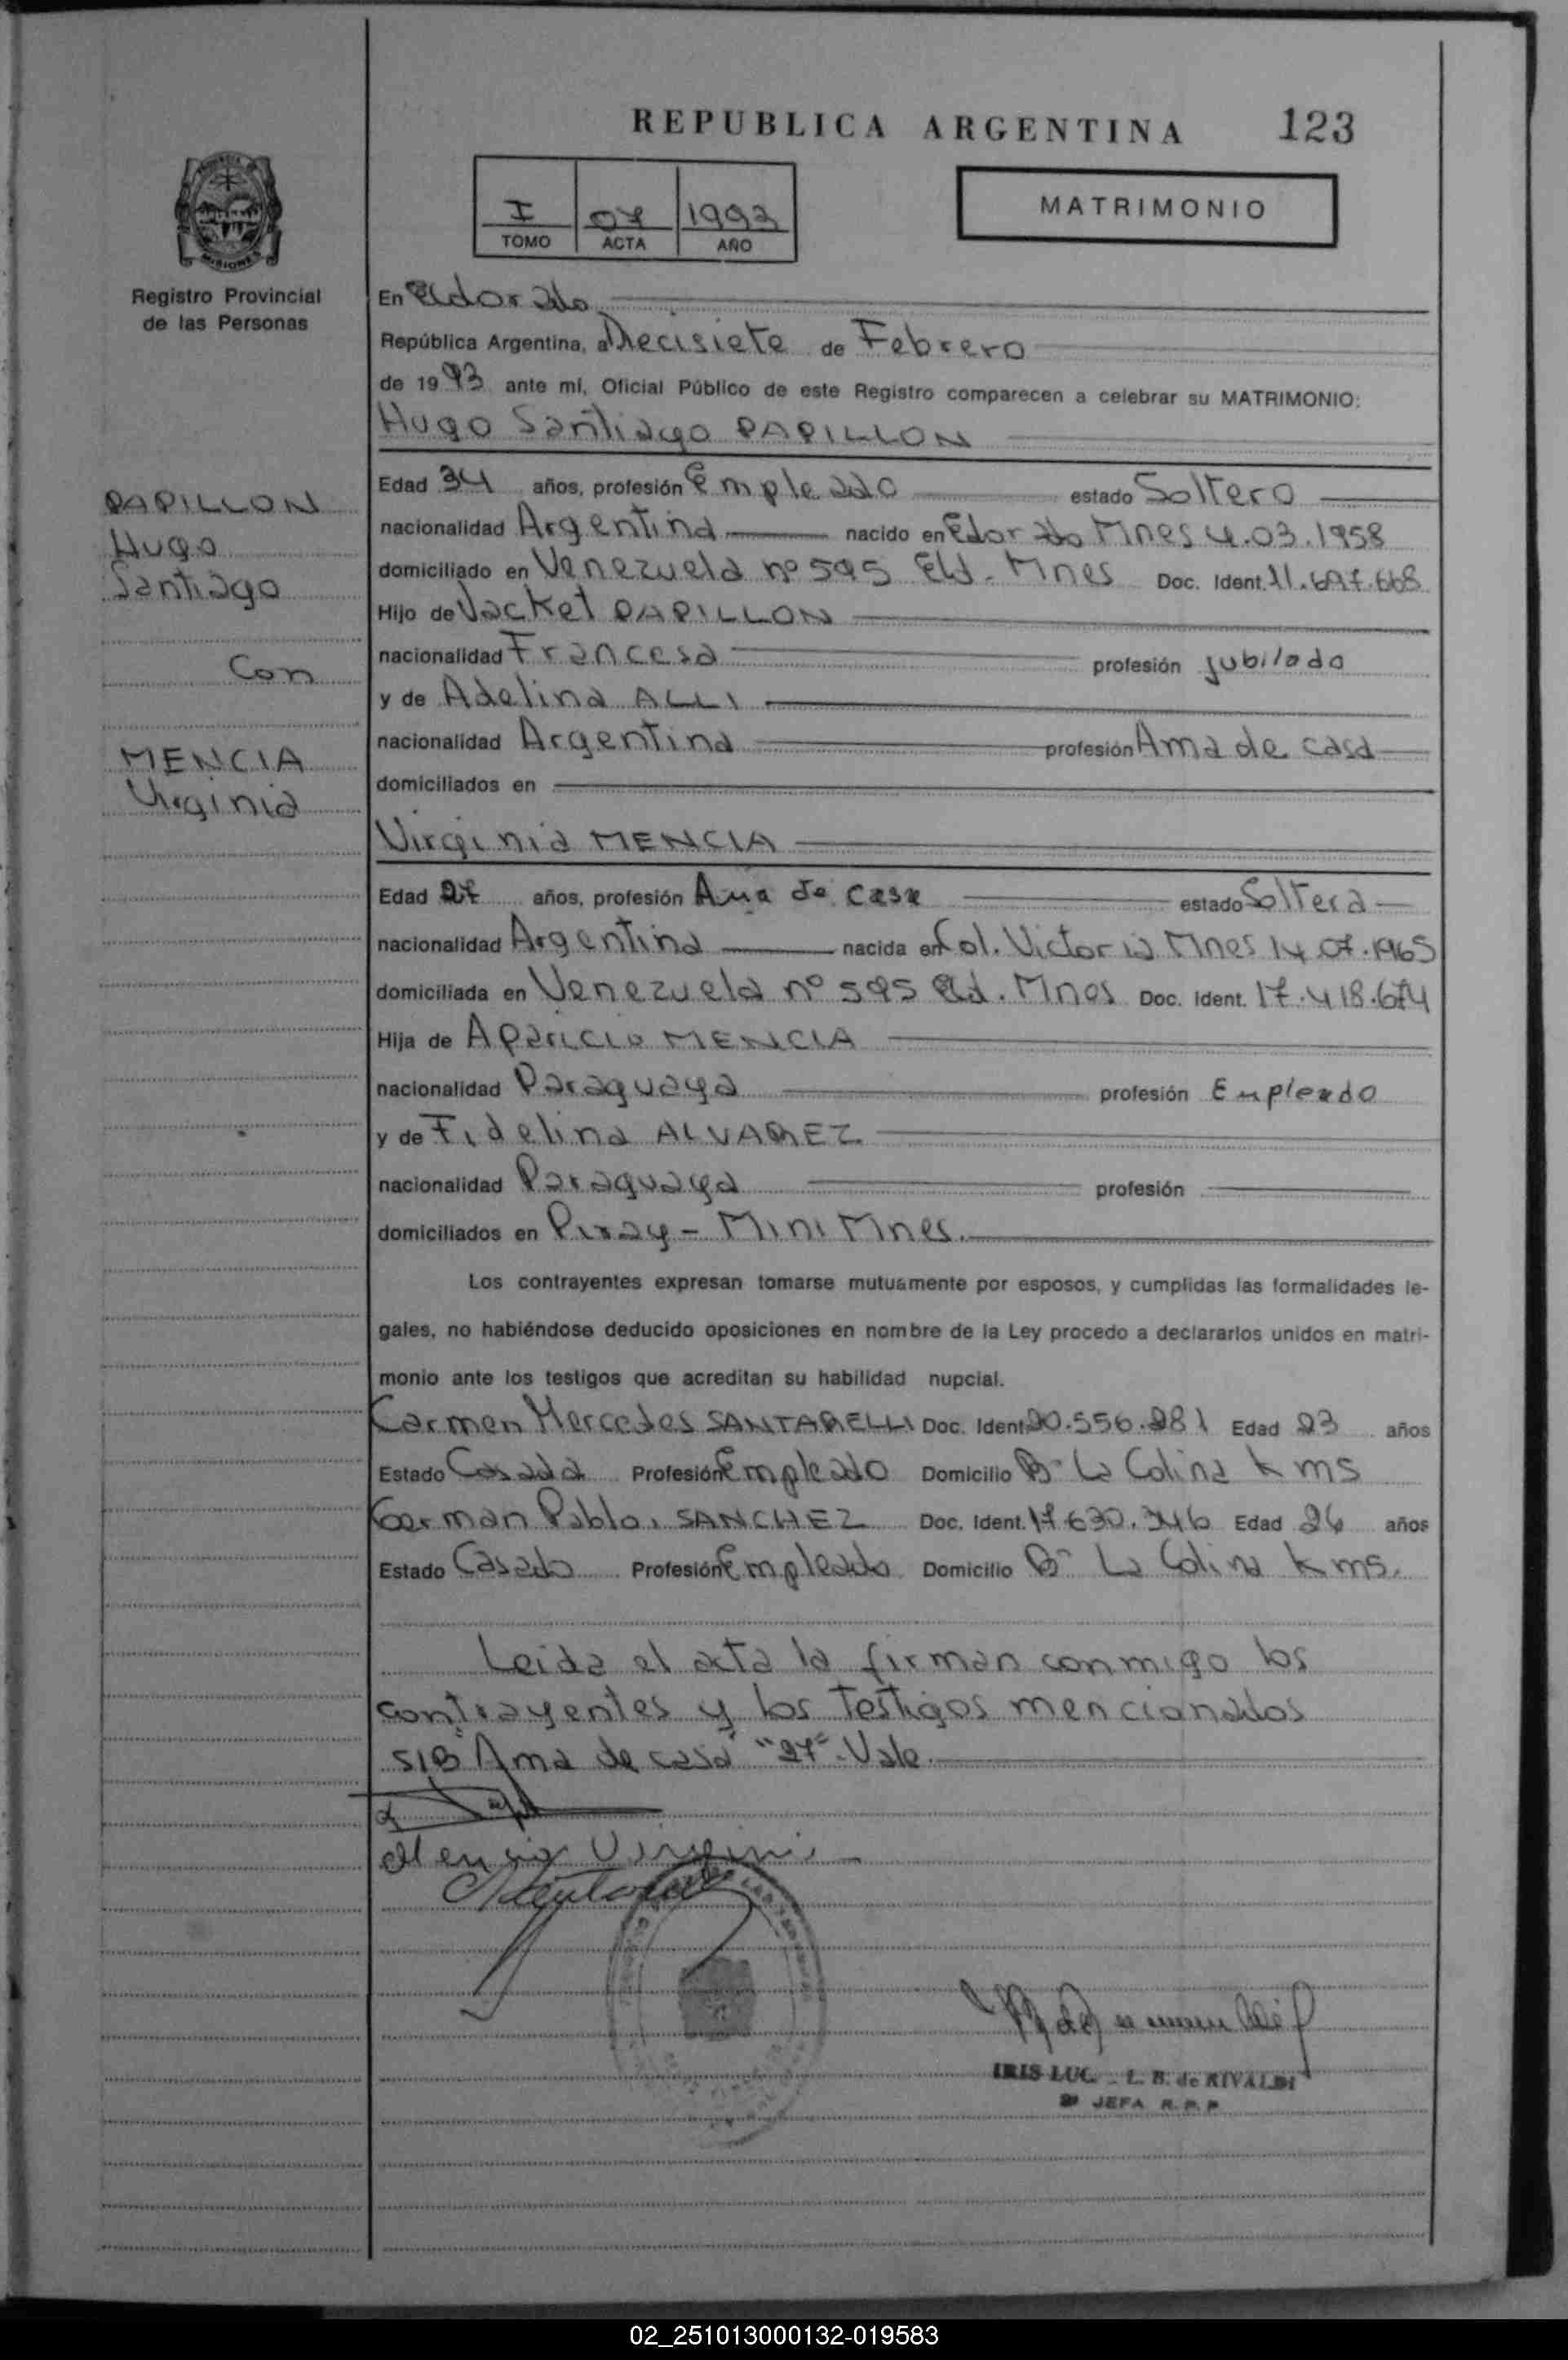 REPUBLICA ARGENTINA 123
I 07 1993
TOMO ACTA AÑO
MATRIMONIO
MISIONES
Registro Provincial
de las Personas
PAPILLON
Hugo
Santiago
Con
MENCIA
Virginia
En Eldorado
República Argentina, a Diecisiete de Febrero
de 1993 ante mí, Oficial Público de este Registro comparecen a celebrar su MATRIMONIO:
Hugo Santiago PAPILLON
Edad 34 años, profesión Empleado estado Soltero
nacionalidad Argentina nacido en Eldorado Mnes 4.03.1958
domiciliado en Venezuela nº 595 Eld. Mnes Doc. Ident. 11.697.668
Hijo de Jacket PAPILLON
nacionalidad Francesa profesión jubilado
y de Adelina ALLI
nacionalidad Argentina profesión Ama de casa
domiciliados en
Virginia MENCIA
Edad 27 años, profesión Ama de casa estado Soltera
nacionalidad Argentina nacida en Col. Victoria Mnes 14.07.1965
domiciliada en Venezuela nº 595 Eld. Mnes Doc. Ident. 17.418.674
Hija de Aparicio MENCIA
nacionalidad Paraguaya profesión Empleado
y de Fidelina ALVAREZ
nacionalidad Paraguaya profesión
domiciliados en Piray-Mini Mnes.
Los contrayentes expresan tomarse mutuamente por esposos, y cumplidas las formalidades le-
gales, no habiéndose deducido oposiciones en nombre de la Ley procedo a declararlos unidos en matri-
monio ante los testigos que acreditan su habilidad nupcial.
Carmen Mercedes SANTARELLI Doc. Ident. 20.556.281 Edad 23 años
Estado Casada Profesión Empleado Domicilio Bº La Colina Km5
German Pablo, SANCHEZ Doc. Ident. 17.630.346 Edad 26 años
Estado Casado Profesión Empleado Domicilio Bº La Colina Km5.
Leida el acta la firman conmigo los
contrayentes y los testigos mencionados
S/B "Ama de casa" "27" Vale.
Mencia Virginia
IRIS L. B. de RIVALDI
JEFA R. P. P.
02_251013000132-019583